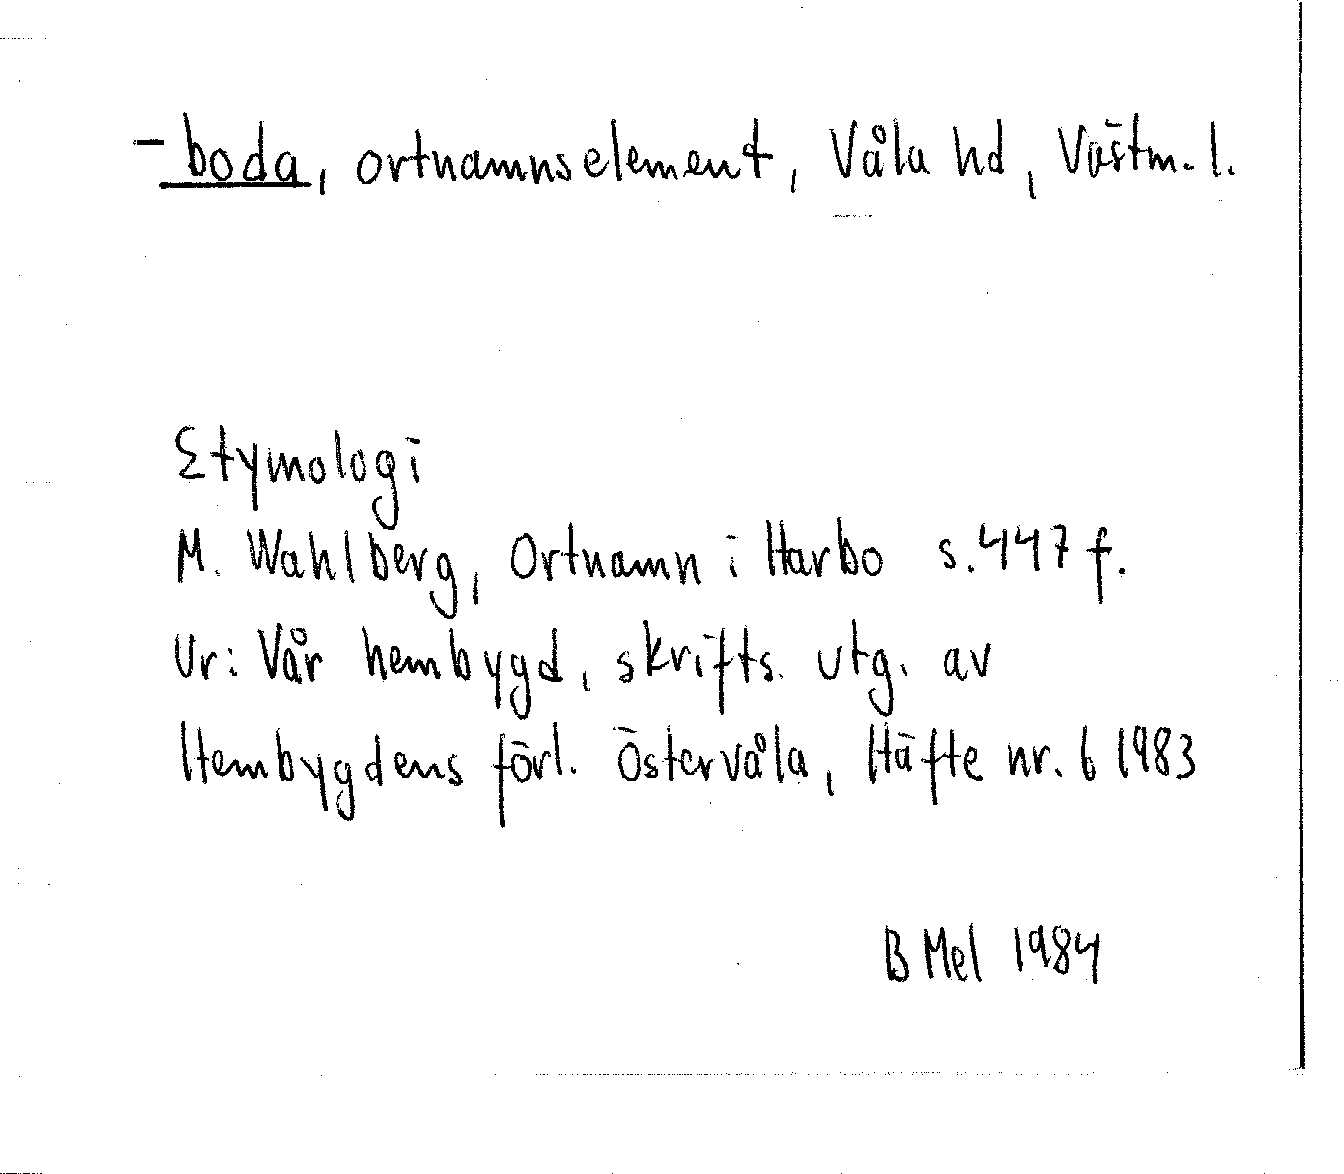 -boda, ortnamnselement, Våla hd, Västm. l.
Etymologi
M. Wahlberg, Ortnamn i Harbo s. 447 f.
Ur: Vår hembygd, skrifts. utg. av
Hembygdens förl. Östervåla, Häfte nr. 6 1983
B Mel 1984